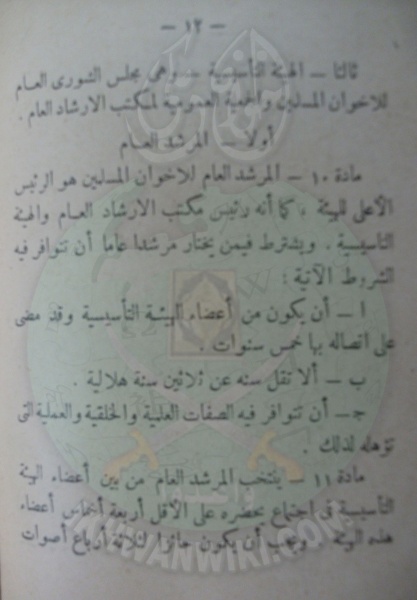 — ١٢ —
ثالثا — الهيئة التأسيسية — وهى مجلس الشورى العام
للاخوان المسلمين والجمعية العمومية لمكتب الارشاد العام .
أولا — المرشد العام
مادة ١٠ — المرشد العام للاخوان المسلمين هو الرئيس
الأعلى للهيئة ، كما أنه رئيس مكتب الارشاد العام والهيئة
التأسيسية . ويشترط فيمن يختار مرشدا عاما أن تتوافر فيه
الشروط الآتية :
ا — أن يكون من أعضاء الهيئة التأسيسية وقد مضى
على اتصاله بها خمس سنوات .
ب — ألا تقل سنه عن ثلاثين سنة هلالية .
جـ — أن تتوافر فيه الصفات العلمية والخلقية والعملية التى
تؤهله لذلك .
مادة ١١ — ينتخب المرشد العام من بين أعضاء الهيئة
التأسيسية فى اجتماع يحضره على الأقل أربعة أخماس أعضاء
هذه الهيئة . ويجب أن يكون حائزا لثلاثة أرباع أصوات